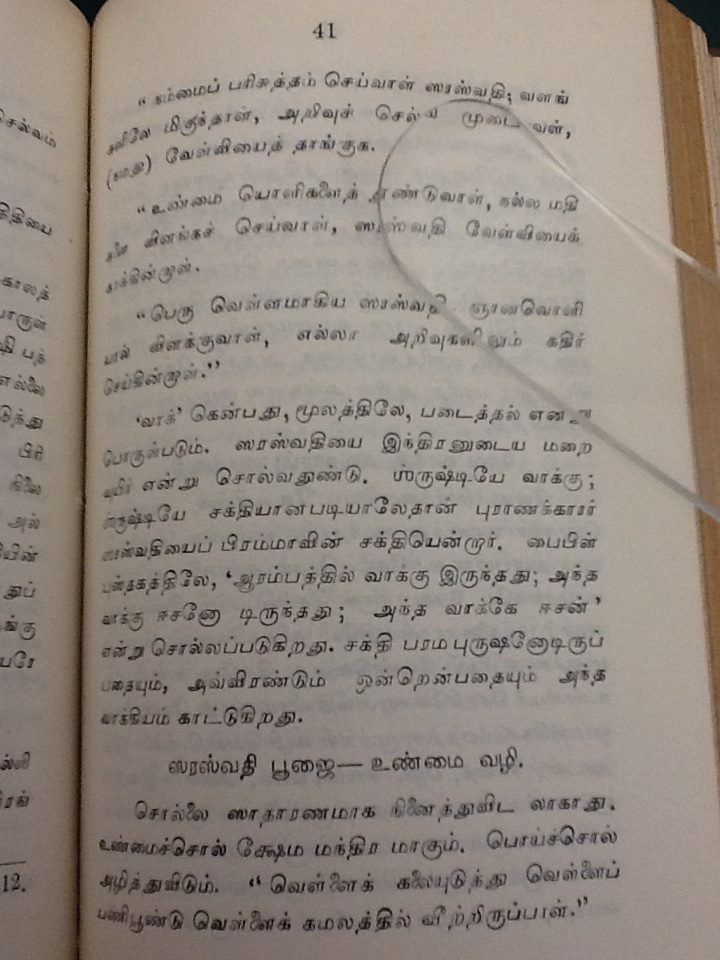 41
“ நம்மைப் பரிசுத்தம் செய்வாள் ஸரஸ்வதி; வளங்
களிலே மிகுந்தாள், அறிவுச் செல்வ முடையவள்,
(நமது) வேள்வியைத் தாங்குக.
“உண்மை யொளிகளைத் தூண்டுவாள், நல்ல மதி
களை விளங்கச் செய்வாள், ஸரஸ்வதி வேள்வியைக்
காக்கின்றாள்.
“பெரு வெள்ளமாகிய ஸரஸ்வதி ஞானவொளி
யால் விளக்குவாள், எல்லா அறிவுகளிலும் கதிர்
செய்கின்றாள்.”
‘வாக்’ கென்பது, மூலத்திலே, படைத்தல் எனறு
பொருள்படும். ஸரஸ்வதியை இந்திரனுடைய மறை
யுயிர் என்று சொல்வதுண்டு. ஸ்ருஷ்டியே வாக்கு;
ஸ்ருஷ்டியே சக்தியானபடியாலேதான் புராணக்காரர்
ஸரஸ்வதியைப் பிரம்மாவின் சக்தியென்றார். பைபிள்
புஸ்தகத்திலே, ‘ஆரம்பத்தில் வாக்கு இருந்தது; அந்த
வாக்கு ஈசனோ டிருந்தது; அந்த வாக்கே ஈசன்’
என்று சொல்லப்படுகிறது. சக்தி பரம புருஷனோடிருப்
பதையும், அவ்விரண்டும் ஒன்றென்பதையும் அந்த
வாக்கியம் காட்டுகிறது.
ஸரஸ்வதி பூஜை— உண்மை வழி.
சொல்லை ஸாதாரணமாக நினைத்துவிட லாகாது.
உண்மைச்சொல் க்ஷேம மந்திர மாகும். பொய்ச்சொல்
அழித்துவிடும். “வெள்ளைக் கலையுடுத்து வெள்ளைப்
பணிபூண்டு வெள்ளைக் கமலத்தில் வீற்றிருப்பாள்.”
12.